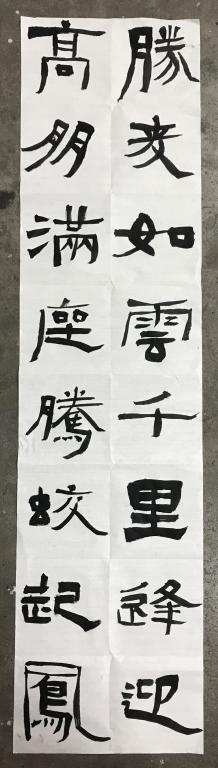 勝友如雲千里逢迎
高朋滿座騰蛟起鳳